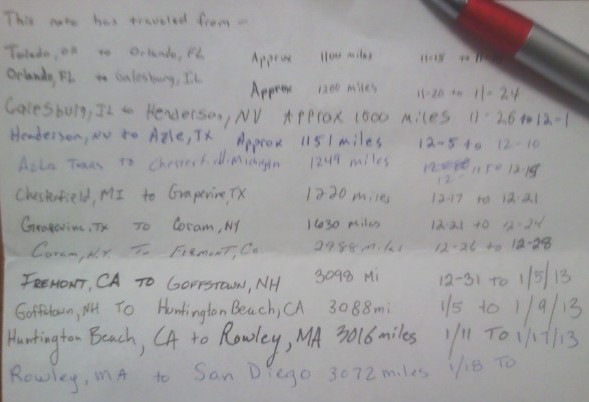 This note has traveled from -
Toledo, OH to Orlando, FL Approx 1100 miles 11-15 to
Orlando, FL to Galesburg, IL Approx 1200 miles 11-20 to 11-24
Galesburg, IL to Henderson, NV Approx 1600 miles 11-26 to 12-1
Henderson, NV to Azle, TX Approx 1151 miles 12-5 to 12-10
Azle Texas to Chesterfield Michigan 1249 miles
Chesterfield, MI to Grapevine, TX 1220 miles 12-17 to 12-21
Grapevine, TX TO Coram, NY 1630 miles 12-21 to 12-24
Coram, N.Y. To FREMONT, Ca 2988 miles 12-26 to 12-28
FREMONT, CA TO GOFFSTOWN, NH 3098 Mi 12-31 TO 1/5/13
Goffstown, NH TO Huntington Beach, CA 3088mi 1/5 to 1/9/13
Huntington Beach, CA to Rowley, MA 3016 miles 1/11 TO 1/17/13
Rowley, MA to San Diego 3072 miles 1/18 TO